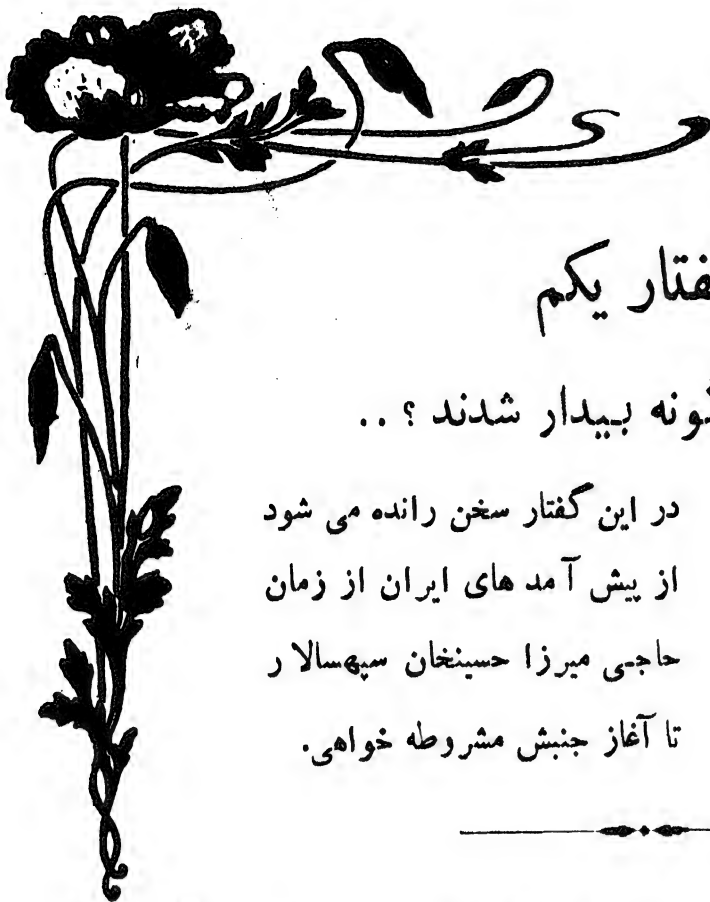 فتار یکم
گونه بیدار شدند ؟ ..
در این گفتار سخن رانده می شود
از پیش آمد های ایران از زمان
حاجی میرزا حسینخان سپهسالار
تا آغاز جنبش مشروطه خواهی.